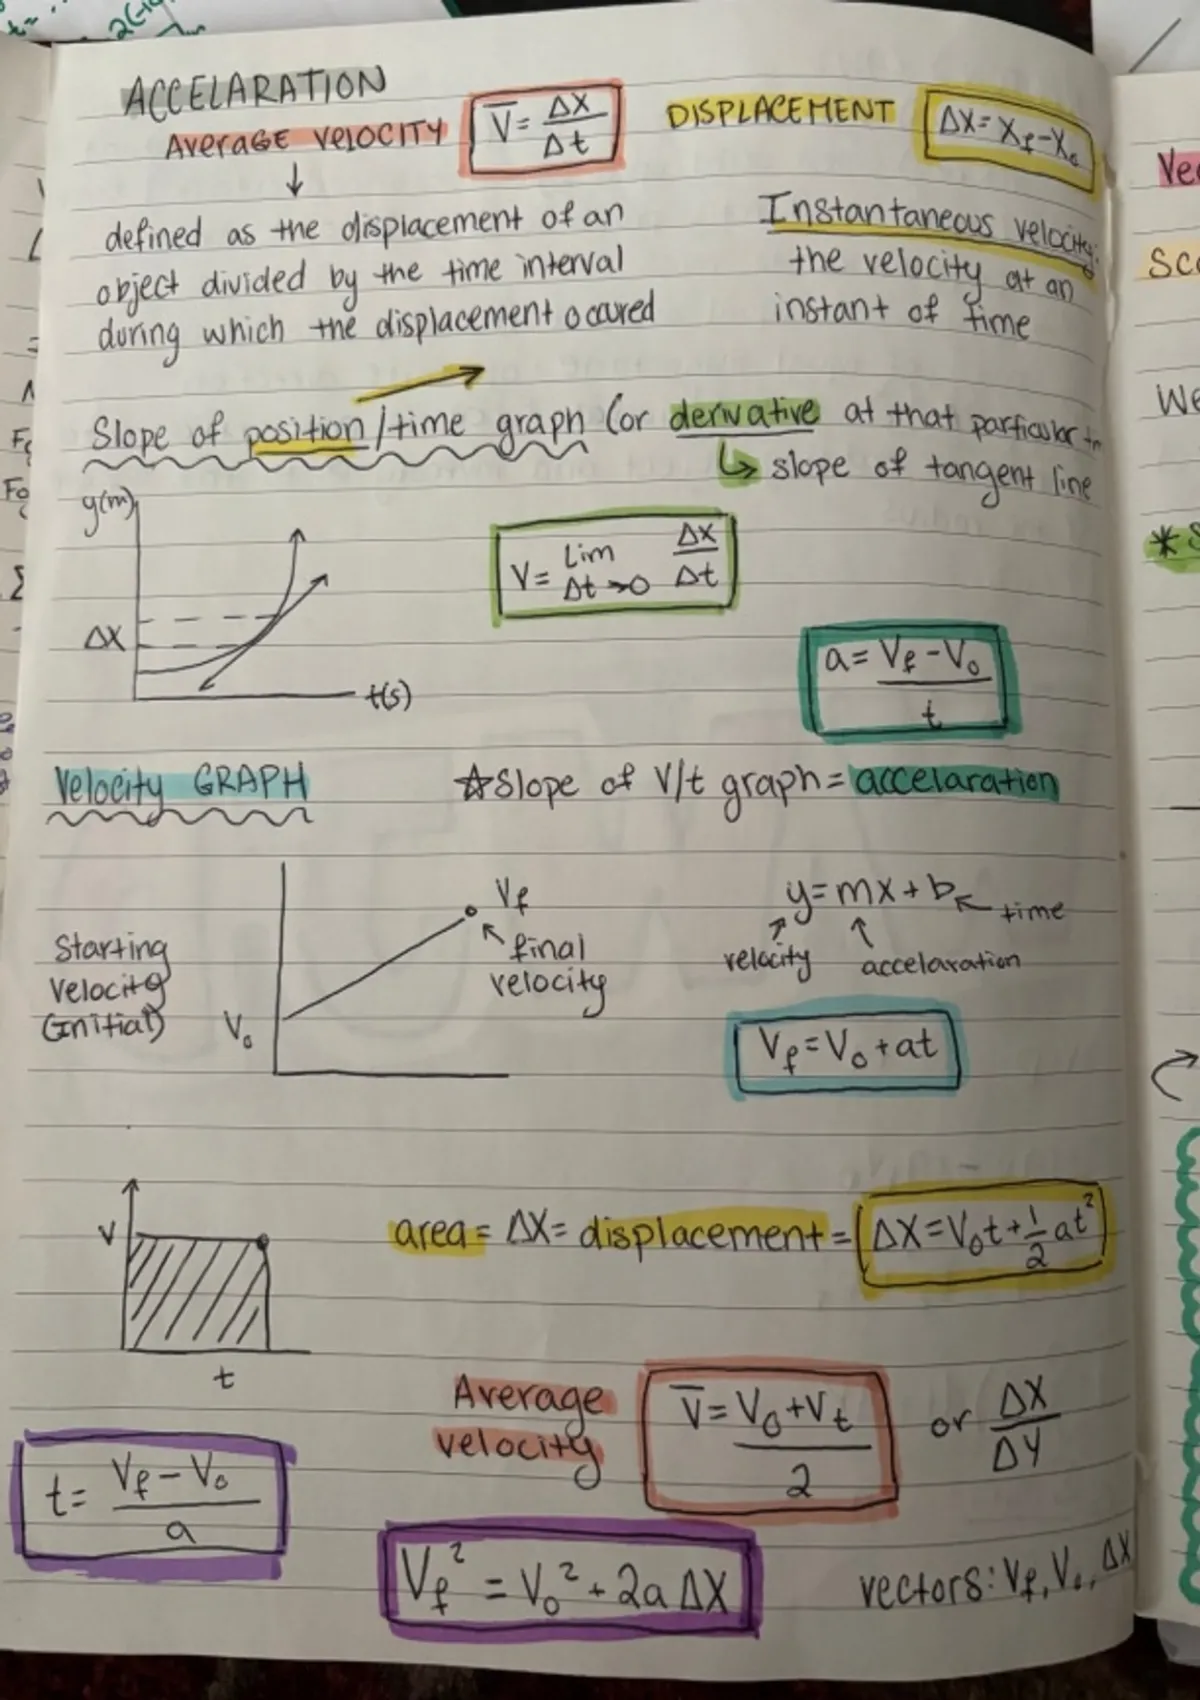 ACCELARATION
AVERAGE VELOCITY V̅ = ΔX/Δt DISPLACEMENT ΔX = Xf - X₀
↓
defined as the displacement of an
object divided by the time interval
during which the displacement occured
Instantaneous velocity:
the velocity at an
instant of time
Slope of position/time graph (or derivative at that particular
↳ slope of tangent line
y(m)
ΔX
t(s)
V = Lim Δt→0 ΔX/Δt
a = Vf - V₀ / t
Velocity GRAPH ☆Slope of V/t graph = accelaration
Starting
velocity
(Initial)
V₀
Vf
final
velocity
y = mx + b ← time
velocity accelaration
Vf = V₀ + at
V
t
area = ΔX = displacement = ΔX = V₀t + ½at²
Average
velocity
V̅ = V₀ + Vt / 2 or ΔX/ΔY
t = Vf - V₀ / a
Vf² = V₀² + 2aΔX
vectors: Vf, V₀, ΔX
Sc
We